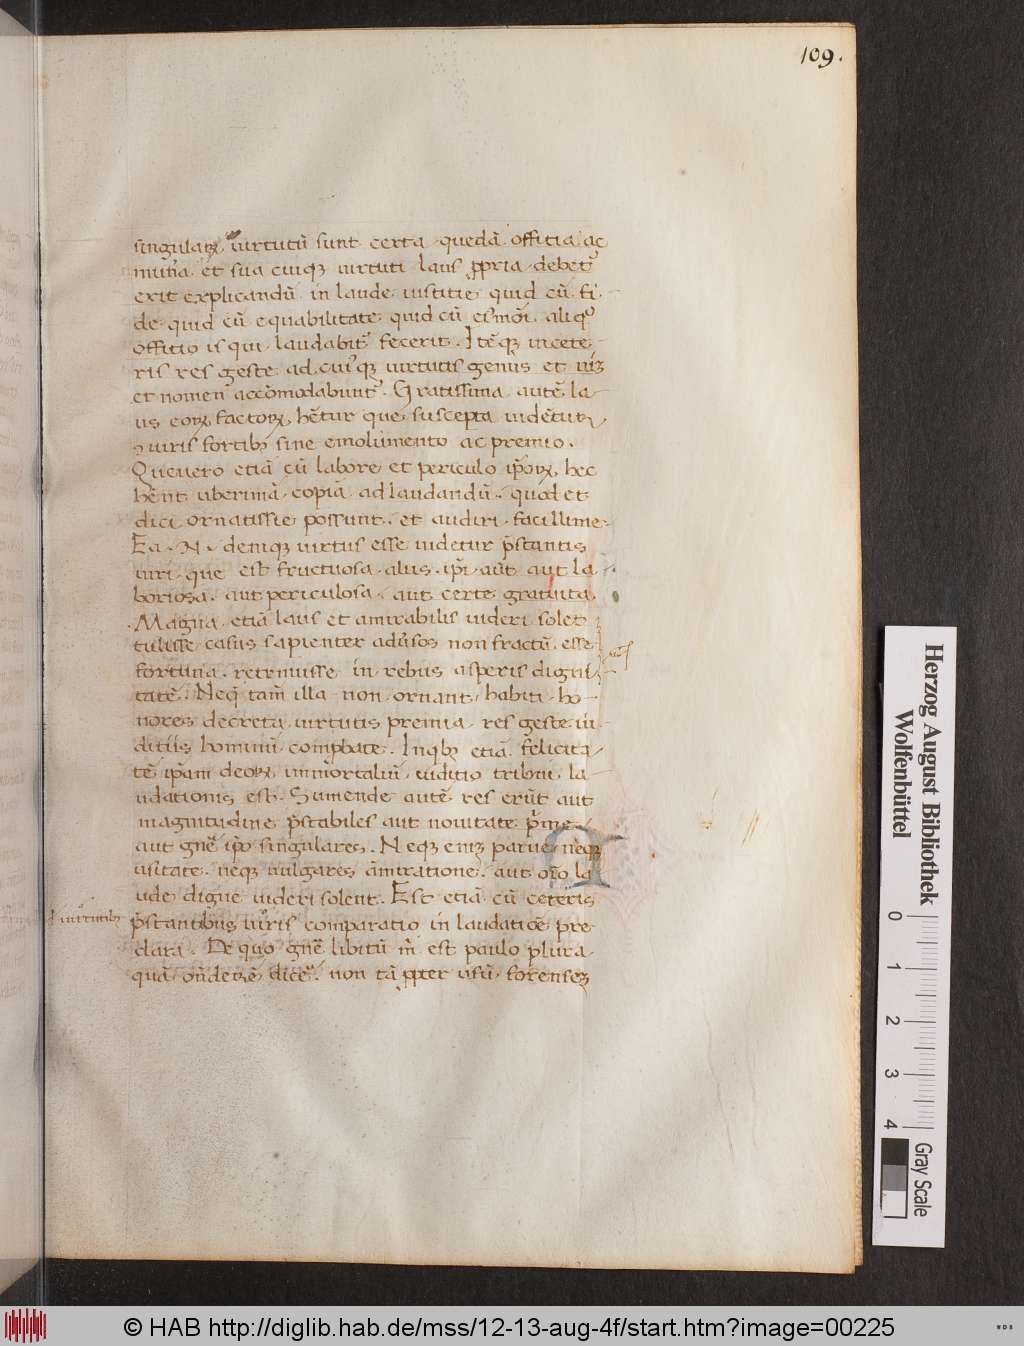 109.
singularꝝ uirtutũ sunt certa quedã offitia ac
mun̾a et sua cuiqꝫ uirtuti laus ꝓpria debet̾
erit explicandũ in laude iustitie quid cũ fi
de quid cũ equabilitate quid cũ ei᷒mõi aliqͦ
offitio is qui laudabit̾ fecerit. Itẽqꝫ in cete
ris res geste ad cui᷒qꝫ uirtutis genus et uiꝫ
et nomen accõmodabunt̾. Gratissima autẽ la
us eoꝝ factoꝝ hẽtur que suscepta uidẽtur
a uiris fortibꝫ sine emolumento ac premio.
Que uero etiã cũ labore et periculo ip̃oꝝ hec
hẽnt uberimã copiã ad laudandũ. quod et
dici ornatissĩe possunt. et audiri facillime
Ea .N. deniqꝫ uirtus esse uidetur p̃stantis
uiri que est fructuosa aliis. ip̃i aũt aut la
boriosa. aut periculosa. aut certe gratuita.
Magna etiã laus et amirabilis uideri solet
tulisse casus sapienter adũsos non fractũ esse
fortuna. retinuisse in rebus asperis digni
tatẽ. Neqꝫ tam̃ illa non ornant habiti ho
nores decreta uirtutis premia res geste iu
ditiis hominũ comp̱bate. In qͥbꝫ etiã felicita
tẽ ip̃am deoꝝ immortaliũ iuditio tribui la
udationis est. Sumende autẽ res erũt aut
magnitudine p̃stabiles aut nouitate p̃me
aut gñe ip̃o singulares. Neqꝫ eniꝫ parue neqꝫ
usitate neqꝫ uulgares amiratione. aut oĩo la
ude digne uideri solent. Est etiã cũ ceteris
uirtutibꝫ
p̃stantibus uiris comparatio in laudatiõe pre
clara. De quo gñe libitũ m̃ est paulo plura
quã ondereĩ dicẽ. non tã ꝓpter usũ forenseꝫ
Herzog August Bibliothek
Wolfenbüttel
0 1 2 3 4
Gray Scale
© HAB http://diglib.hab.de/mss/12-13-aug-4f/start.htm?image=00225